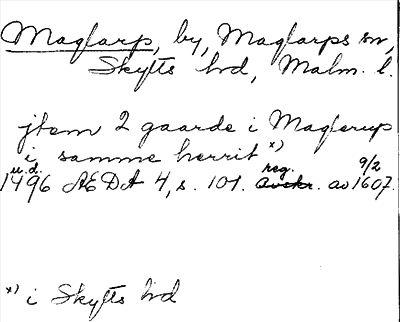 Maglarp, by, Maglarps sn,
Skytts hd, Malm. l.
jtem 2 gaarde i Maglerup
i samme herrit x)
u.d. reg. 9/2
1496 ÆDA 4, s. 101. av 1607.
x) i Skytts hd